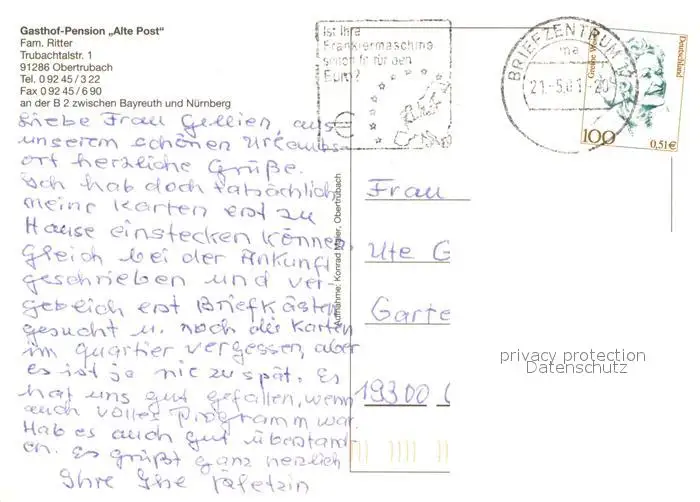 Gasthof-Pension „Alte Post"
Fam. Ritter
Trubachtalstr. 1
91286 Obertrubach
Tel. 0 92 45 / 3 22
Fax 0 92 45 / 6 90
an der B 2 zwischen Bayreuth und Nürnberg
Liebe Frau Gellien, aus
unserem schönen Urlaubs-
ort herzliche Grüße.
Ich hab doch tatsächlich
meine Karten erst zu
Hause einstecken können,
gleich bei der Ankunft
geschrieben und ver-
geblich erst Briefkästen
gesucht u. noch die Karten
im Quartier vergessen, aber
es ist ja nie zu spät. Es
hat uns gut gefallen, wenn
auch volles Programm war.
Hab es auch gut überstand-
en. Es grüßt ganz herzlich
Ihre Ilse
Aufnahme: Konrad Maier, Obertrubach
Ist Ihre
Frankiermaschine
schon fit für den
Euro?
€
BRIEFZENTRUM
21.-5.01.-20
Deutschland
100
0,51€
Frau
Ute G
Garte
19300
privacy protection
Datenschutz